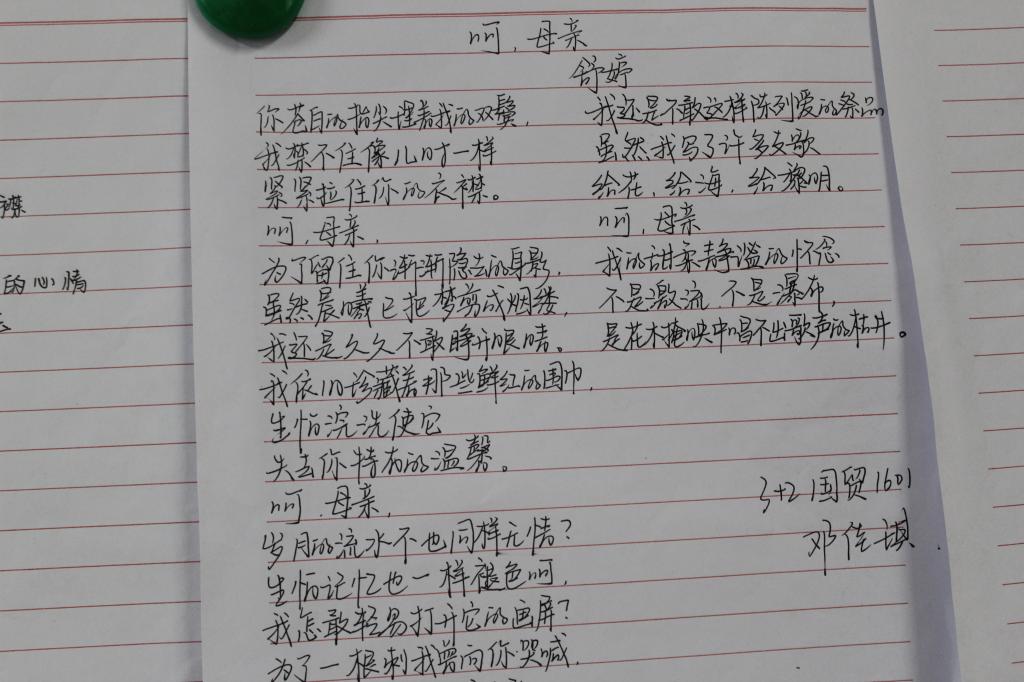 呵，母亲
舒婷
你苍白的指尖理着我的双鬓，
我禁不住像儿时一样
紧紧拉住你的衣襟。
呵，母亲，
为了留住你渐渐隐去的身影，
虽然晨曦已把梦剪成烟缕，
我还是久久不敢睁开眼睛。
我依旧珍藏着那些鲜红的围巾，
生怕浣洗使它
失去你特有的温馨。
呵，母亲，
岁月的流水不也同样无情？
生怕记忆也一样褪色呵，
我怎敢轻易打开它的画屏？
为了一根刺我曾向你哭喊，
我还是不敢这样陈列爱的祭品
虽然我写了许多支歌
给花，给海，给黎明。
呵，母亲
我的甜柔静谧的怀念
不是激流 不是瀑布，
是花木掩映中唱不出歌声的枯井。
3+2国贸1601
邓佳琪
襟
的心情